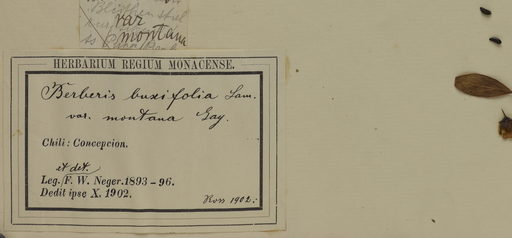 var
montana
HERBARIUM REGIUM MONACENSE.
Berberis buxifolia Lam.
var. montana Gay.
Chili: Concepcion.
et det.
Leg. F. W. Neger. 1893-96.
Dedit ipse X. 1902.
Ross 1902.